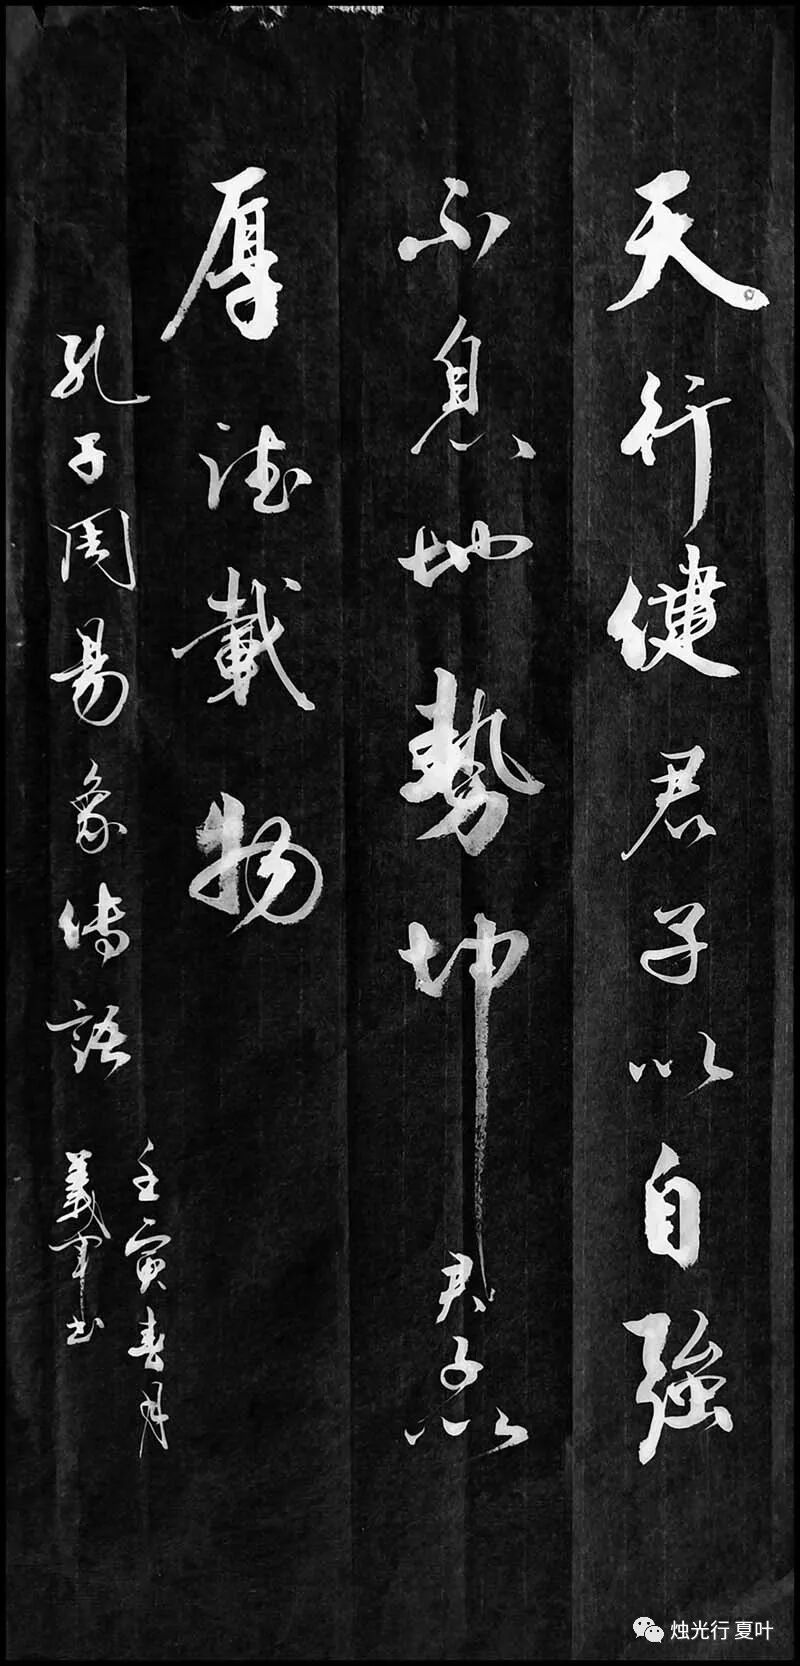 天行健君子以自強
不息地勢坤君子以
厚德載物
孔子周易象傳語
壬寅春月
義軍书
烛光行 夏叶